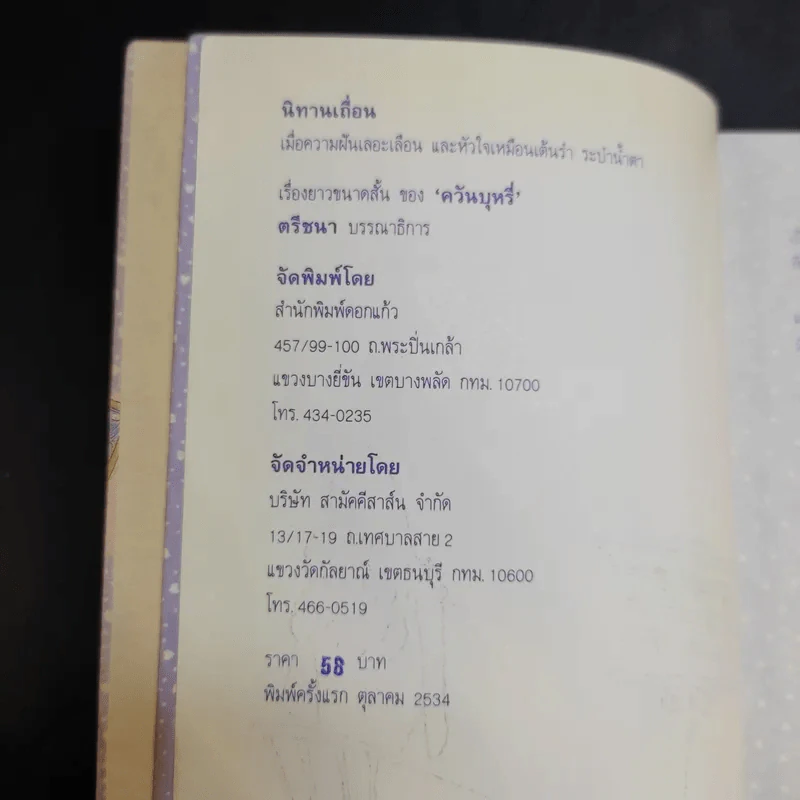 นิทานเถื่อน
เมื่อความฝันเลอะเลือน และหัวใจเหมือนเต้นรำ ระบำน้ำตา
เรื่องยาวขนาดสั้น ของ ‘ควันบุหรี่’
ตรีชนา บรรณาธิการ
จัดพิมพ์โดย
สำนักพิมพ์ดอกแก้ว
457/99-100 ถ.พระปิ่นเกล้า
แขวงบางยี่ขัน เขตบางพลัด กทม. 10700
โทร. 434-0235
จัดจำหน่ายโดย
บริษัท สามัคคีสาส์น จำกัด
13/17-19 ถ.เทศบาลสาย 2
แขวงวัดกัลยาณ์ เขตธนบุรี กทม. 10600
โทร. 466-0519
ราคา 58 บาท
พิมพ์ครั้งแรก ตุลาคม 2534